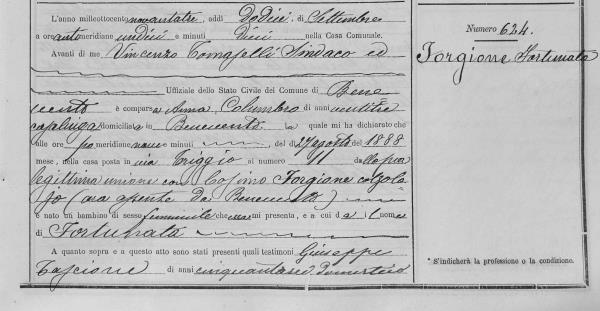 L'anno milleottocento novantatre, addì Dodici di Settembre
a ore antimeridiane undici e minuti dieci nella Casa Comunale.
Avanti di me Vincenzo Tomaselli Sindaco ed
Uffiziale dello Stato Civile del Comune di Bene
vento è comparsa Anna Columbro di anni ventitre
casalinga domiciliata in Benevento la quale mi ha dichiarato che
alle ore pomeridiane nove e minuti del dì 27 agosto del 1888
mese, nella casa posta in via Triggio al numero 11 dalla sua
legittima unione con Cosimo Forgione calzola
jo (ora assente da Benevento)
è nato un bambino di sesso femminile che mi presenta, e a cui dà il nome
di Fortunata
A quanto sopra e a questo atto sono stati presenti quali testimoni Giuseppe
Tascione di anni cinquantasei domestico
Numero 624.
Forgione Fortunata
* S'indicherà la professione o la condizione.